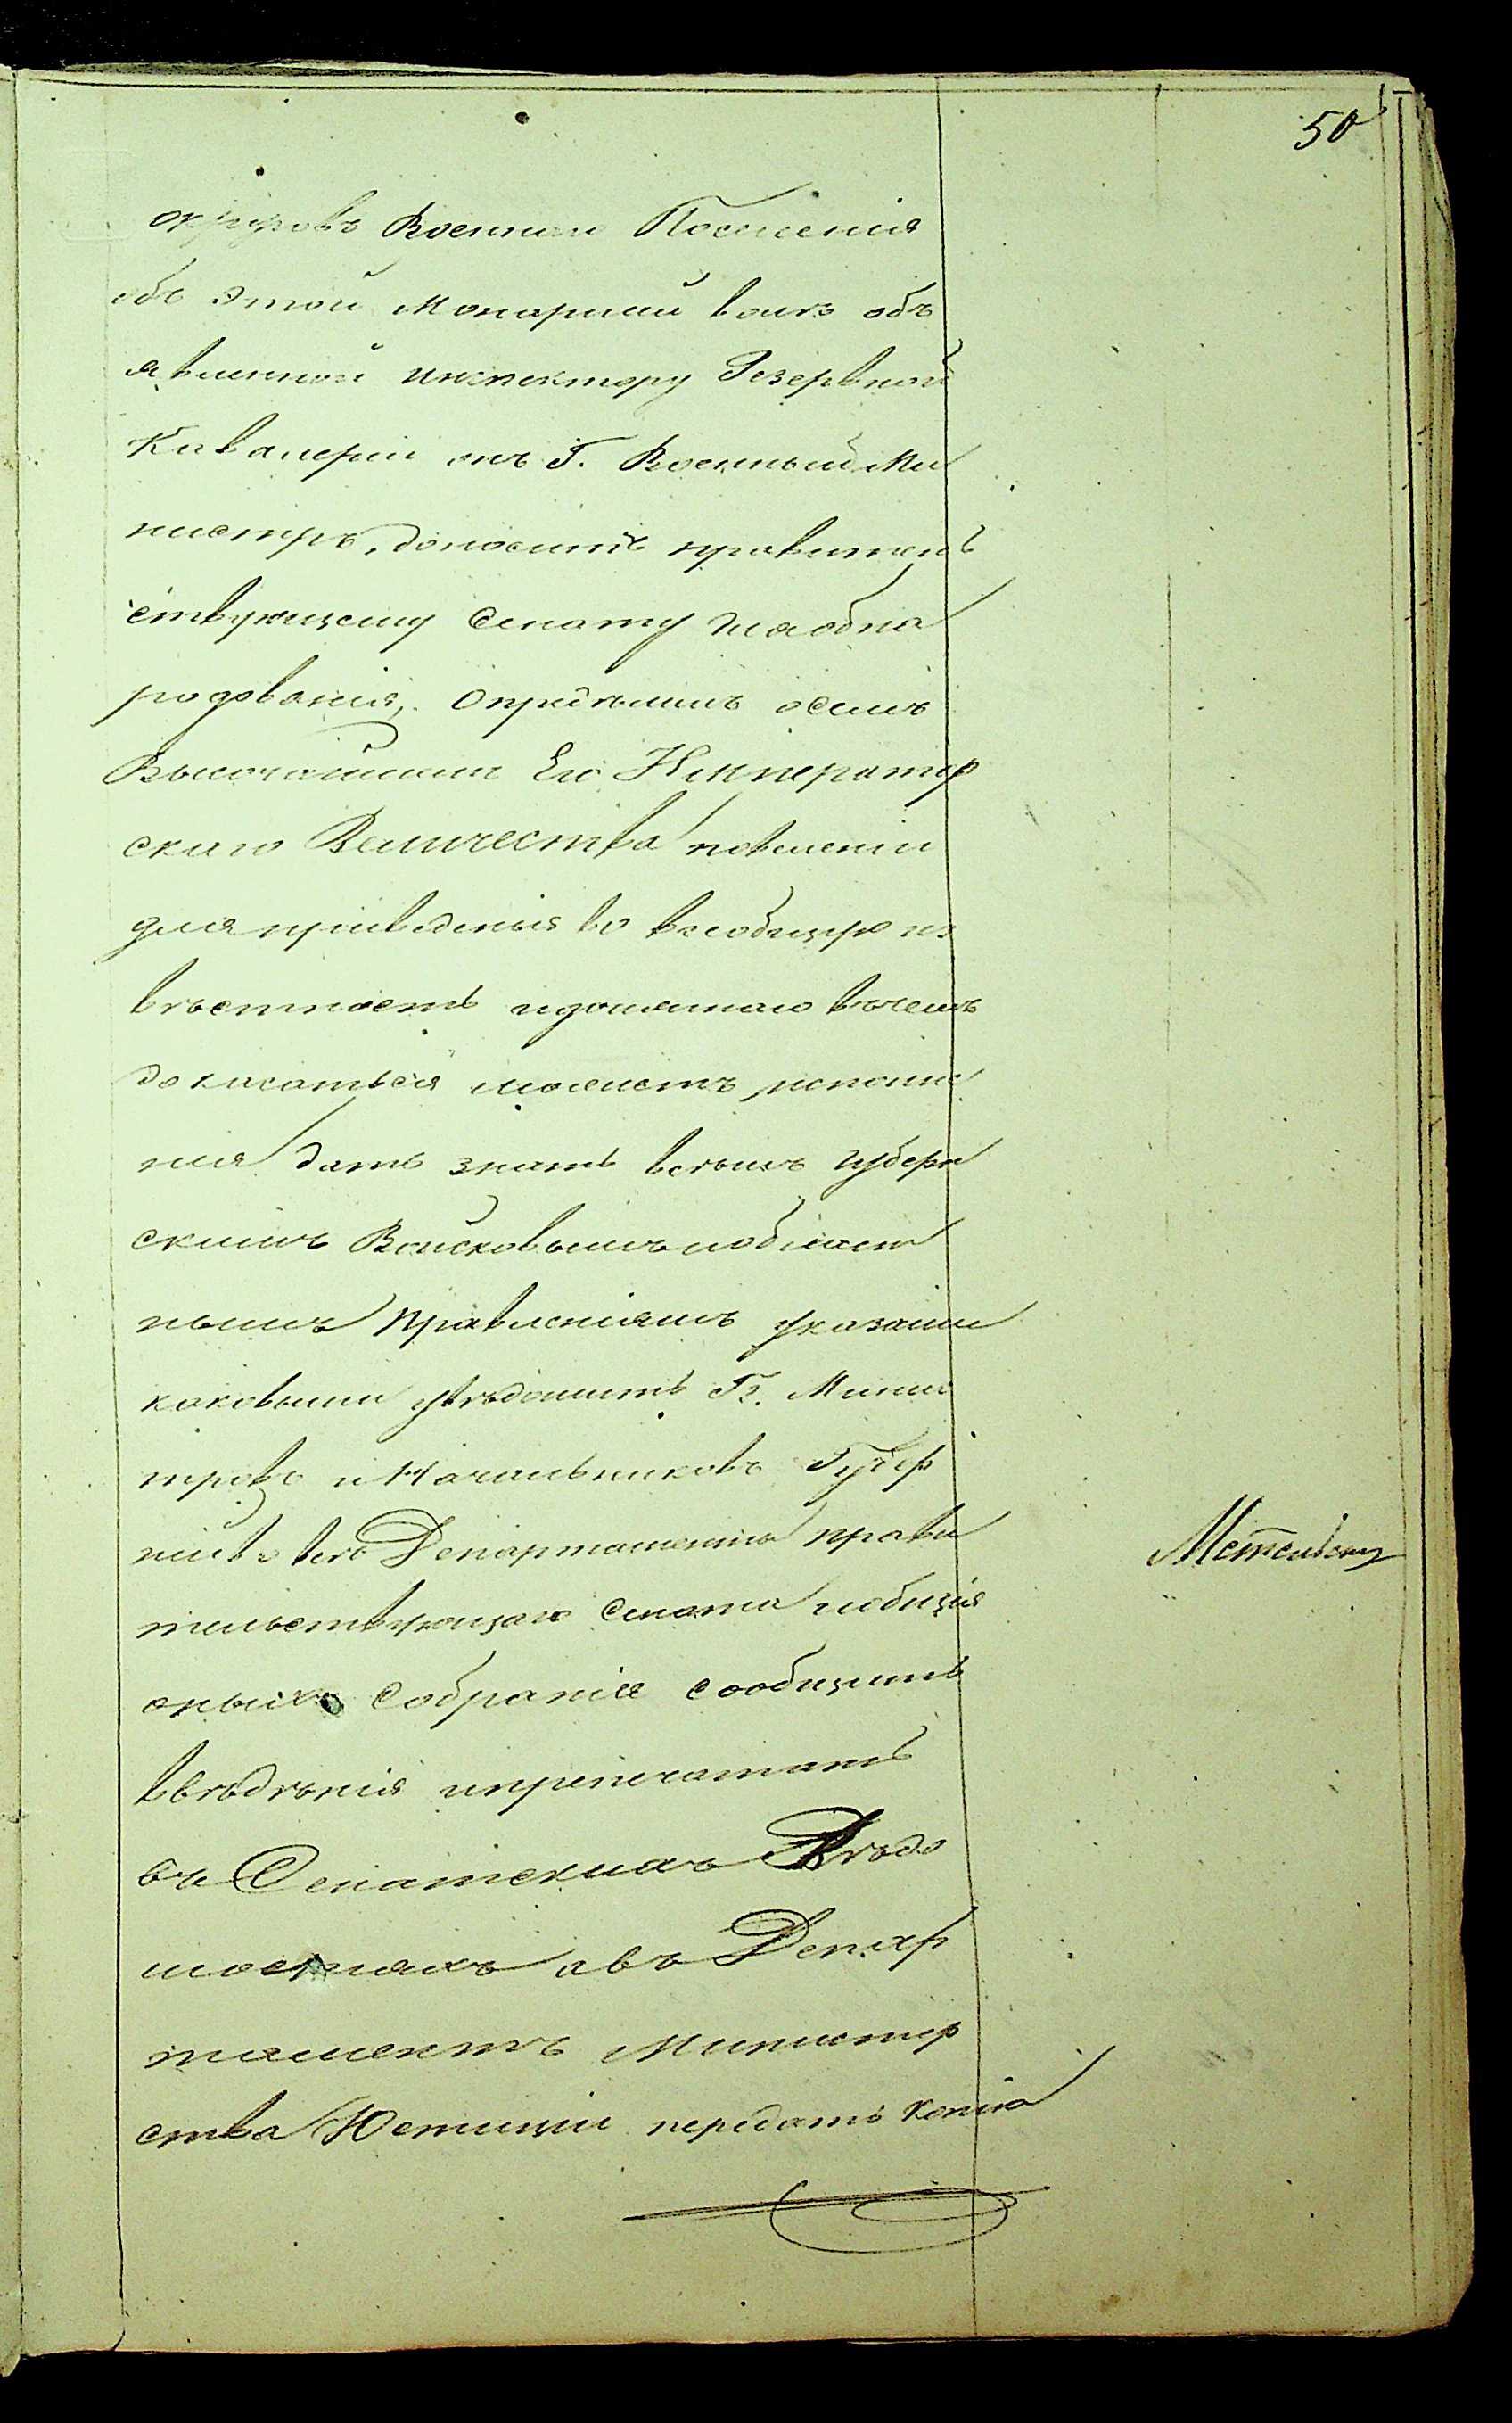 50
округовъ Военнаго Поселенія
объ этой Монаршей волѣ объ
явленной инспектору Резервной
Кавалеріи онъ Г. Военный Ми
нистръ, доноситъ правитель
ствующему Сенату для обна
родованія, Опредѣлили: о семъ
Высочайшемъ Его Император
скаго Величества повеленіи
для приведенія во всеобщую из
вѣстность и должнаго въ чемъ
до касаться можетъ, исполне
нія дать знать всѣмъ Губерн
скимъ Войсковымъ и област
нымъ Правленіямъ указами
каковыми увѣдомить Гг. Минис
тровъ и Начальниковъ Губер
ній въ всѣ Департаменты прави
тельствующаго Сената и общія
оныхъ Собранія сообщить
ввѣдѣнія и припечатать
въ Сенатскихъ Вѣдо
мостяхъ а въ Депар
таментъ Министер
ства Юстиціи передать копію